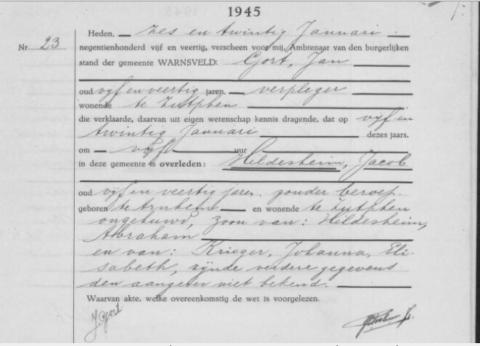 1945
Heden, zes en twintig Januari
Nr. 23 negentienhonderd vijf en veertig, verscheen voor mij, Ambtenaar van den burgerlijken
stand der gemeente WARNSVELD: Gort, Jan
oud vijf en veertig jaren, verpleger
wonende te Zutphen
die verklaarde, daarvan uit eigen wetenschap kennis dragende, dat op vijf en
twintig Januari dezes jaars,
om vijf uur
in deze gemeente is overleden: Heldesheim, Jacob
oud vijf en veertig jaren, zonder beroep
geboren te Arnhem en wonende te Zutphen
ongehuwd, zoon van: Heldesheim,
Abraham
en van: Krieger, Johanna, Eli
sabeth, zijnde verdere gegevens
den aangever niet bekend.
Waarvan akte, welke overeenkomstig de wet is voorgelezen.
J Gort